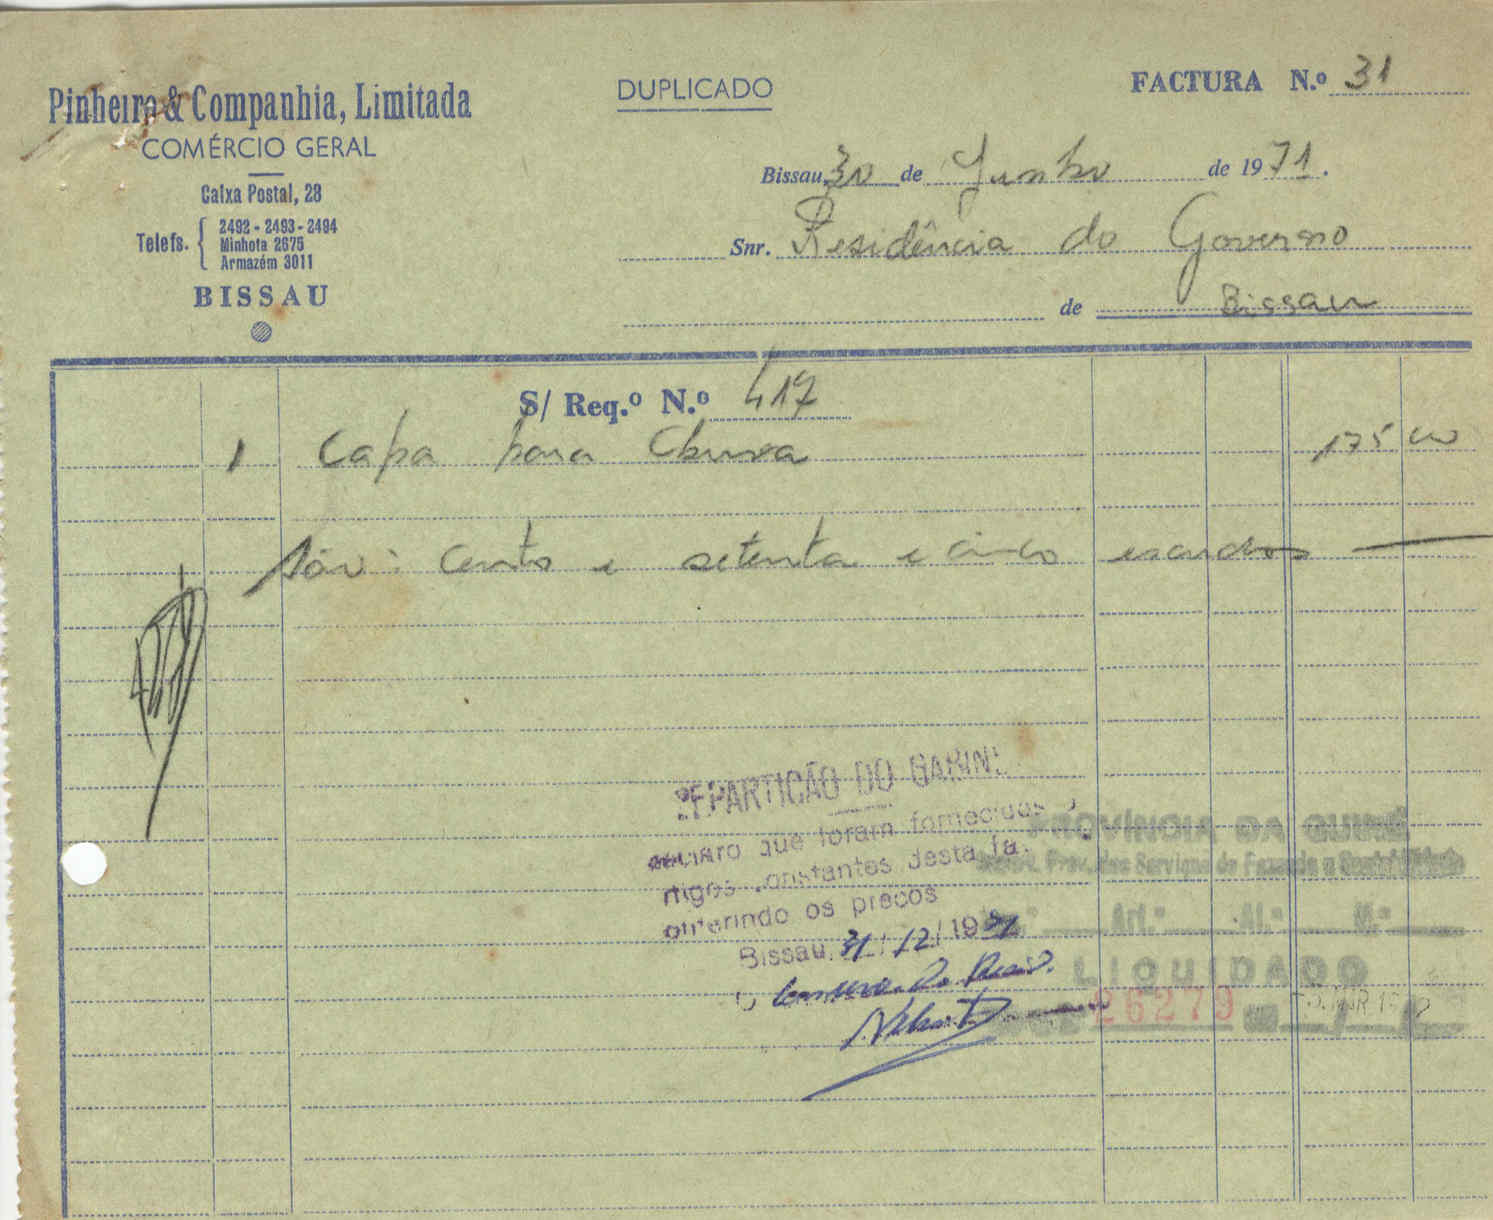 Pinheiro & Companhia, Limitada
COMÉRCIO GERAL
Caixa Postal, 28
Telefs. { 2492 - 2493 - 2494
Minhota 2675
Armazém 3011
BISSAU
DUPLICADO
FACTURA N.º 31
Bissau, 30 de Junho de 1971.
Snr. Residência do Governo
de Bissau
S/ Req.º N.º 417
1 Capa para Chuva 175 00
São: Cento e setenta e cinco escudos
REPARTIÇÃO DO GABIN
que foram fornecidos
constantes desta fa
os preços
Bissau, 31/12/1971
PROVÍNCIA DA GUINÉ
Prov. dos Serviços de Fazenda e
LIQUIDADO
26279